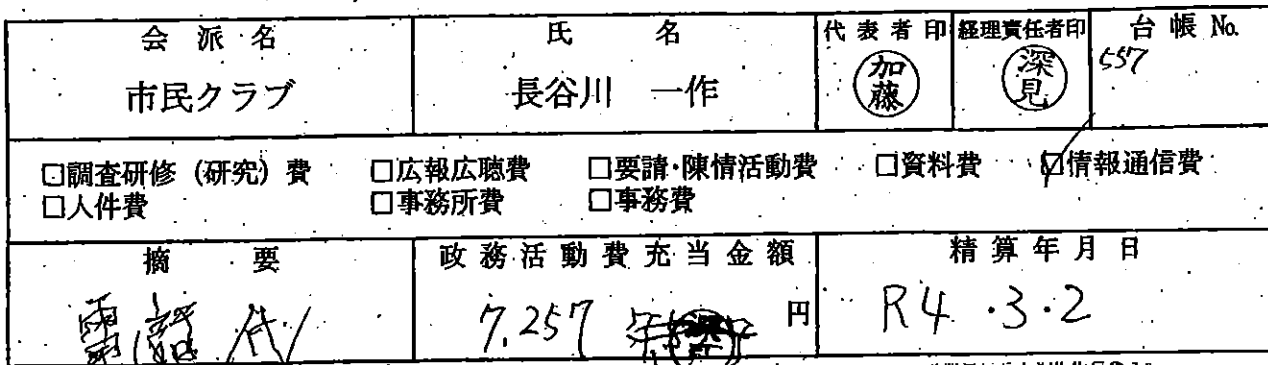 会派名 氏名 代表者印 経理責任者印 台帳 No.
市民クラブ 長谷川 一作 加藤 深見 557
□調査研修（研究）費 □広報広聴費 □要請・陳情活動費 □資料費 ☑情報通信費
□人件費 □事務所費 □事務費
摘要 政務活動費充当金額 精算年月日
電話代 7,257 円 R4.3.2